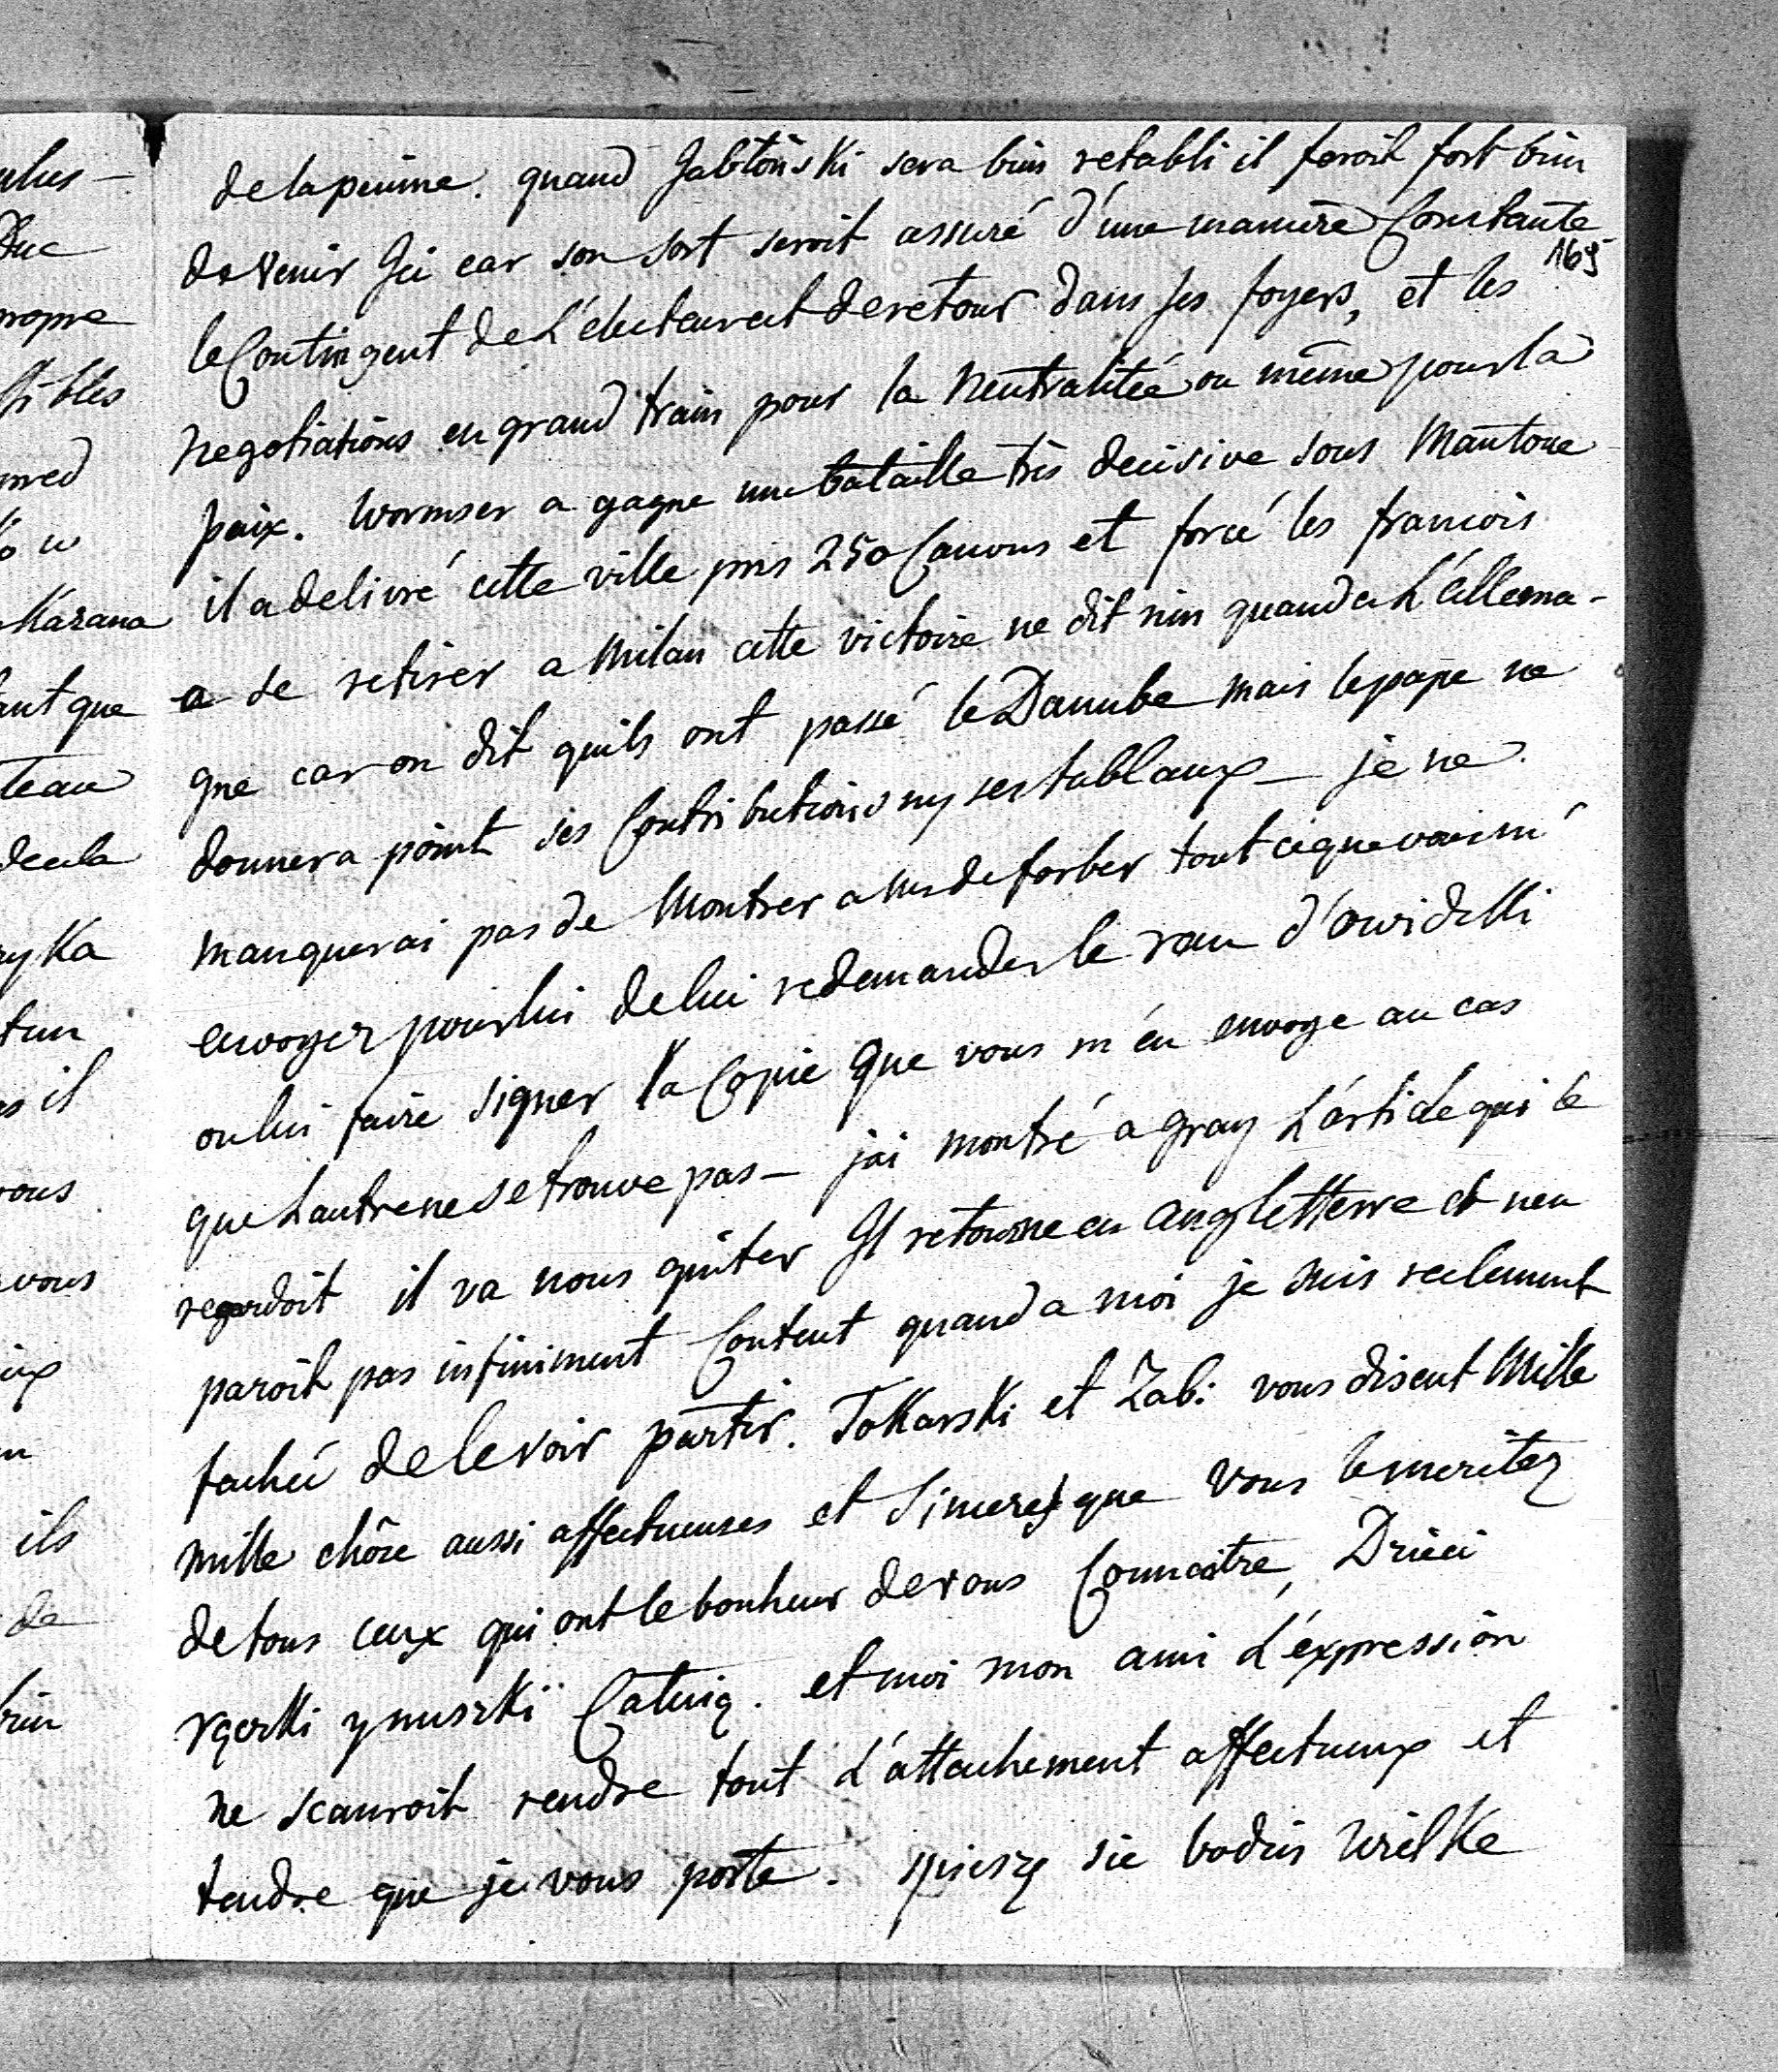 de la peinne. quand Jabłoński sera bien retabli il feroit fort bien
de venir Jci car son sort seroit assuré d'une maniere Constante
169
le Contingent de L'electeur est de retour dans ses foyers, et les
negotiations en grand train pour la neutralitée ou même pour la
paix. Wormser a gagne une bataille très decisive sous Mantoue
il a delivré cette ville pris 250 Canons et forcé les francois
a se retirer a Milan cette victoire ne dit rien quand a L'allema-
gne car on dit quils ont passé le Danube mais le pape ne
donnera point ses Contributions ny ses tablaux — je ne
manquerai pas de Montrer a Mr de forber tout ce que vous m'
envoyez pour lui de lui redemander le d'Owidzki
ou lui faire signer la Copie que vous m'en envoye au cas
que L'autre ne se trouve pas — jai montré a gray L'article qui le
regardoit il va nous quiter Jl retourne en angletterre et nen
paroit pas infiniment Content quand a moi je suis reelement
fachée de le voir partir. Tokarski et Zab: vous disent Mille
mille chôse aussi affectueuses et Sinceres que vous le meritez
de tous ceux qui ont le bonheur de vous Connaitre, Dzieci
rączki y nuszki Całuią. et moi mon ami L'éxpression
ne scauroit rendre tout L'attachement affectueux et
tendre que je vous porte. sie Wielke
ulus —
Duc
propre
o w
Kazana
tant que
teau
de la
ryka
tun
s il
vous
vous
ux
n
ils
de
rien